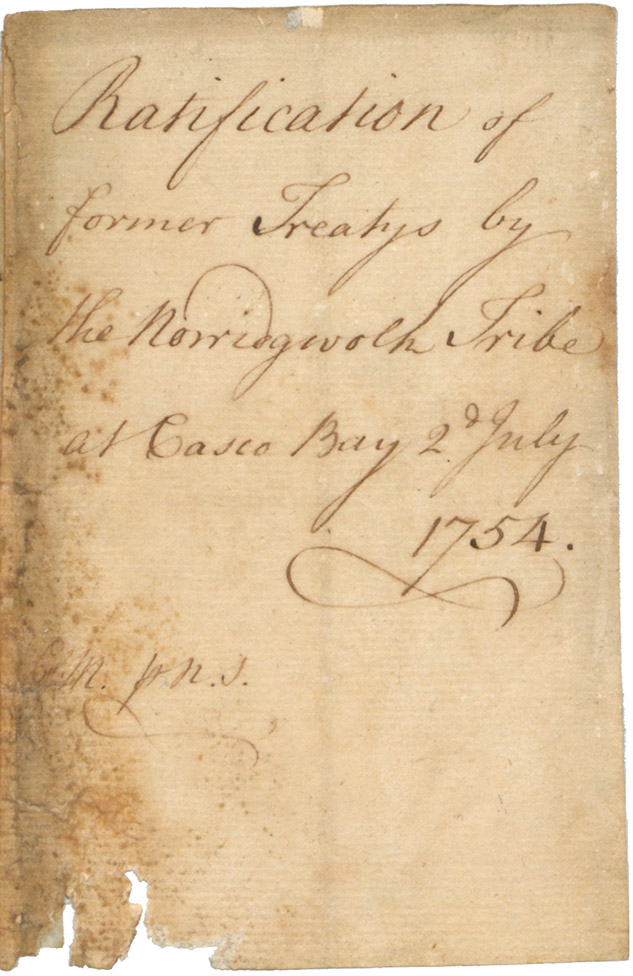 Ratification of
former Treatys by
the Norridgwolk Tribe
at Casco Bay 2d July
1754.